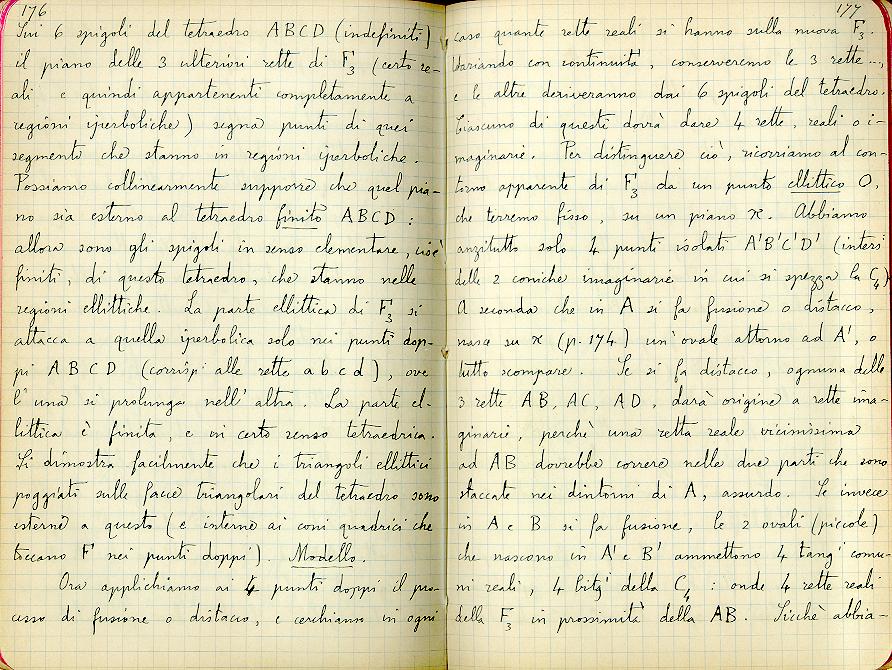 176
Sui 6 spigoli del tetraedro ABCD (indefiniti)
il piano delle 3 ulteriori rette di F₃ (certo re-
ali e quindi appartenenti completamente a
regioni iperboliche) segna punti di quei
segmenti che stanno in regioni iperboliche.
Possiamo collinearmente supporre che quel pia-
no sia esterno al tetraedro finito ABCD :
allora sono gli spigoli in senso elementare, cioè
finiti, di questo tetraedro, che stanno nelle
regioni ellittiche. La parte ellittica di F₃ si
attacca a quella iperbolica solo nei punti dop-
pi A B C D (corrisp.ⁱ alle rette a b c d), ove
l'una si prolunga nell'altra. La parte el-
littica è finita, e in certo senso tetraedrica.
Si dimostra facilmente che i triangoli ellittici
poggiati sulle facce triangolari del tetraedro sono
esterni a questo (e interni ai coni quadrici che
toccano F nei punti doppi). Modello.
Ora applichiamo ai 4 punti doppi il pro-
cesso di fusione o distacco, e cerchiamo in ogni
177
caso quante rette reali si hanno sulla nuova F₃.
Variando con continuità, conserveremo le 3 rette ...,
e le altre deriveranno dai 6 spigoli del tetraedro.
Ciascuno di questi dovrà dare 4 rette, reali o i-
maginarie. Per distinguere ciò, ricorriamo al con-
torno apparente di F₃ da un punto ellittico O,
che terremo fisso, su un piano π. Abbiamo
anzitutto solo 4 punti isolati A'B'C'D' (intersⁱ
delle 2 coniche imaginarie in cui si spezza la C₄)
A seconda che in A si fa fusione o distacco,
nasce su π (p. 174) un'ovale attorno ad A', o
tutto scompare. Se si fa distacco, ognuna delle
3 rette AB, AC, AD, darà origine a rette ima-
ginarie, perchè una retta reale vicinissima
ad AB dovrebbe correre nelle due parti che sono
staccate nei dintorni di A, assurdo. Se invece
in A e B si fa fusione, le 2 ovali (piccole)
che nascono in A' e B' ammettono 4 tangⁱ comu-
ni reali, 4 bitgⁱ della C₄ : onde 4 rette reali
della F₃ in prossimità della AB. Sicchè abbia-